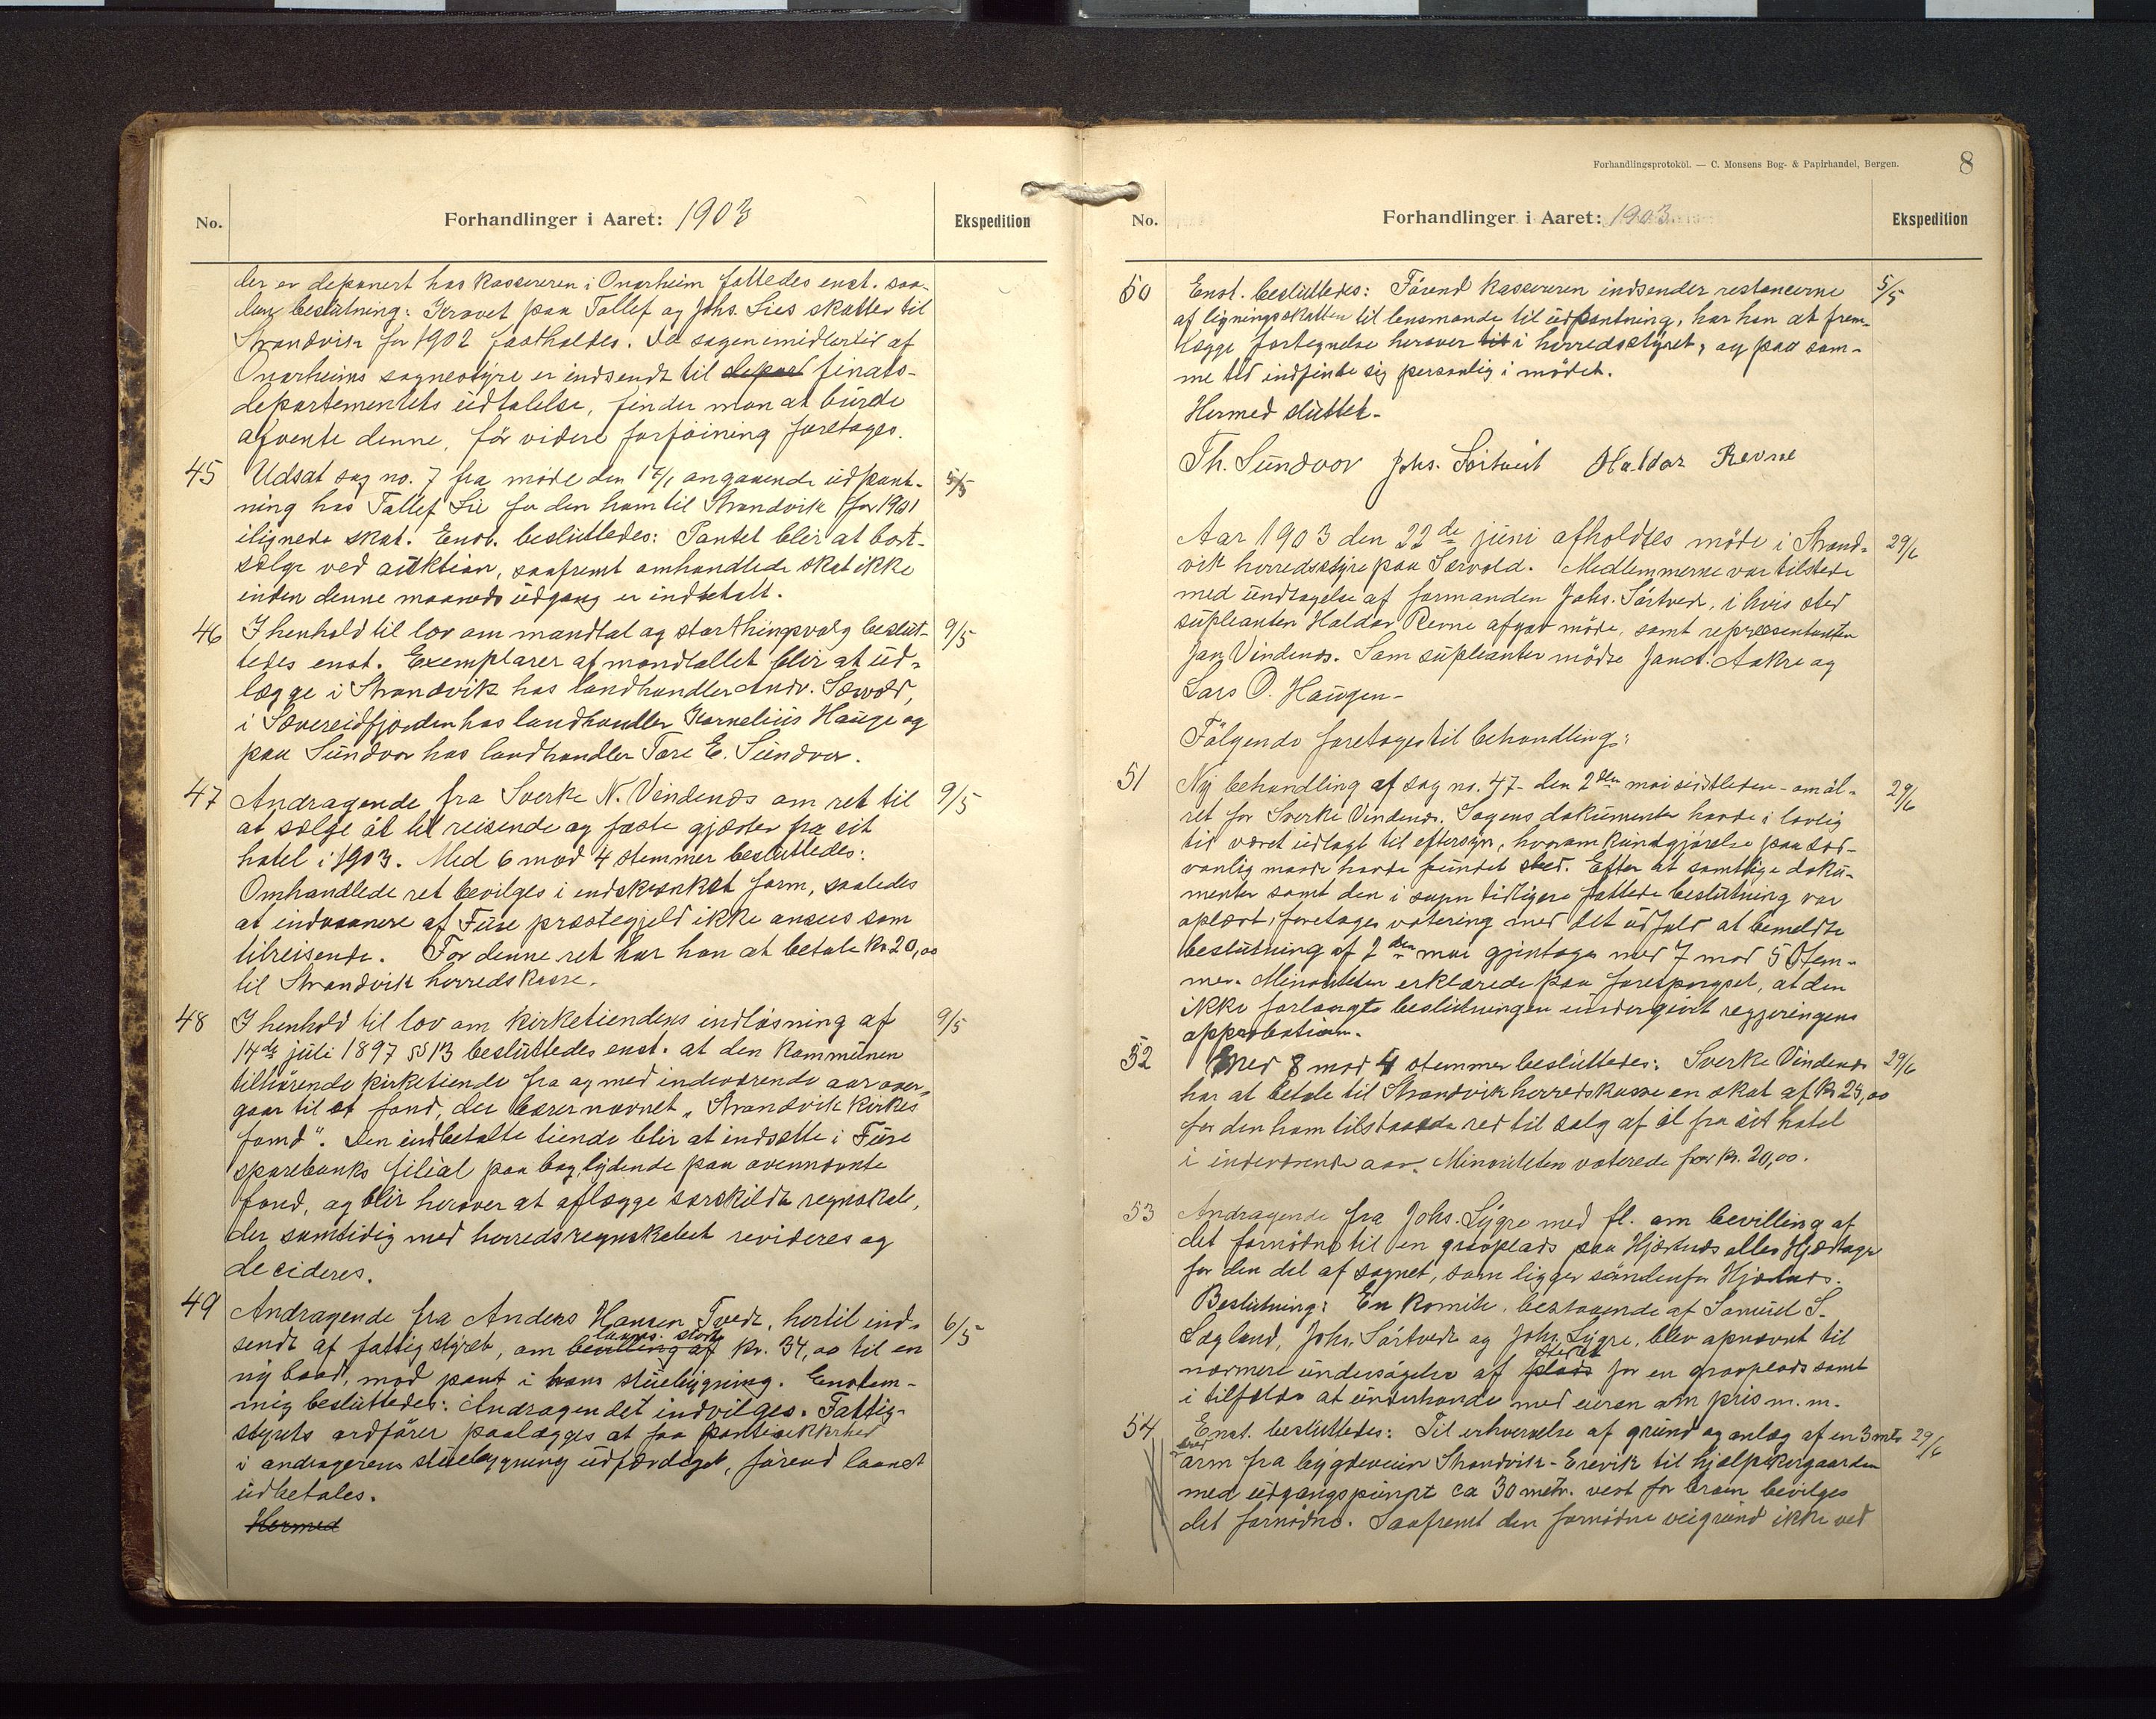 No.
Forhandlinger i Aaret: 1903
Ekspedition
der er deponert hos kassereren i Onarheim fattedes enst. saa-
lunz beslutning: Kravet paa Tollef og Johs. Lies skatter til
Strandvik for 1902 fastholdes. Da sagen imidlertid af
Onarheims sognestyre er indsendt til depart finats-
departementets udtalelse, finder man at burde
afvente denne, før videre forføining foretages.
45 Udsat sag no. 7 fra møde den 17/1 angaaende udpant- 5/5
ning hos Tollef Lie for den ham til Strandvik for 1901
ilignede skat. Enst. besluttedes: Pantet blir at bort-
sælge ved auktion, saafremt omhandlede skat ikke
inden denne maaneds udgang er indbetalt.
46 I henhold til lov om mandtal og storthingsvalg beslut- 9/5
tedes enst. Exemplarer af mandtallet blir at ud-
lægge i Strandvik hos landhandler Andr. Sævold,
i Sævereidfjorden hos landhandler Kornelius Hauge og
paa Sundvor hos landhandler Tore E. Sundvor.
47 Andragende fra Sverke N. Vindenes om ret til 9/5
at sælge øl til reisende og faste gjæster fra sit
hotel i 1903. Med 6 mod 4 stemmer besluttedes:
Omhandlede ret bevilges i indskrænket form, saaledes
at indvaanere af Fuse præstegjeld ikke ansees som
tilreisende. For denne ret har han at betale kr 20,00
til Strandvik herredskasse.
48 I henhold til lov om kirketiendens indløsning af 9/5
14de juli 1897 §§ 13 besluttedes enst. at den kommunen
tilhørende kirketiende fra og med indeværende aar over-
gaar til et fond, der bærer navnet „Strandvik kirkes
fond". Den indbetalte tiende blir at indsætte i Fuse
sparebanks filial paa bog lydende paa ovennævnte
fond, og blir herover at aflægge særskildt regnskab,
der samtidig med herredsregnskabet revideres og
decideres.
49 Andragende fra Anders Hansen Tvedt, hertil ind- 6/5
sendt af fattigstyret, om bevilling af kr. 34,00 til en
ny baad, mod pant i hans stuebygning. Enstem-
mig besluttedes: Andragendet indvilges. Fattig-
styrets ordfører paalægges at faa pantesikkerhed
i andragerens stuebygning udfærdiget, førend laanet
udbetales.
Hermed
Forhandlingsprotokol. — C. Monsens Bog- & Papirhandel, Bergen.
8
No.
Forhandlinger i Aaret: 1903
Ekspedition
50 Enst. besluttedes: Førend kassereren indsender restancerne 5/5
af ligningsskatten til lensmanden til udpantning, har han at frem-
lægge fortegnelse herover til i herredsstyret, og paa sam-
me tid indfinde sig personlig i mødet.
Hermed sluttet.
Th. Sundvor Johs. Sørtveit Haldor Revne
Aar 1903 den 22de juni afholdtes møde i Strand- 29/6
vik herredsstyre paa Sævold. Medlemmerne var tilstede
med undtagelse af formanden Johs. Sørtvedt, i hvis sted
supleanten Haldor Revne afgav møde, samt repræsentanten
Jan Vindenes. Som supleanter mødte Janet. Aakre og
Lars O. Haugen-
Følgende foretages til behandling:
51 Ny behandling af sag no. 47- den 2den mai sidstleden - om øl- 29/6
ret for Sverke Vindenes. Sagens dokumenter havde i lovlig
tid været udlagt til eftersyn, hvorom kundgjørelse paa sæd-
vanlig maade havde fundet sted. Efter at samtlige doku-
menter samt den i sagen tidligere fattede beslutning var
oplæst, foretages votering med det udfald at bemeldte
beslutning af 2den mai gjentages med 7 mod 5 stem-
mer. Minoriteten erklærede paa forespørgsel, at den
ikke forlangte beslutningen undergivet regjeringens
approbation.
52 Med 8 mod 4 stemmer besluttedes: Sverke Vindenes 29/6
har at betale til Strandvik herredskasse en skat af kr 25,00
for den ham tilstaaede ret til salg af øl fra sit hotel
i indeværende aar. Minoriteten voterede for kr. 20,00.
53 Andragende fra Johs. Lygre med fl. om bevilling af
det fornødne til en gravplads paa Hjartnes eller
for den del af sognet, som ligger søndenfor Hjartnes.
Beslutning: En komite, bestaaende af Samuel S.
Lægland, Johs. Sørtvedt og Johs. Lygre, blev opnævnt til
nærmere undersøgelse af plads stedet for en gravplads samt
i tilfælde at underhandle med eieren om pris m. m.
54 Enst. besluttedes: Til erhvervelse af grund og anlæg af en 3 mtr 29/6
bred arm fra bygdeveien Strandvik-Erevik til hjælpekirgaarden
med udgangspunkt ca 30 metr. vest for broen bevilges
det fornødne. Saafremt den fornødne veigrund ikke ved